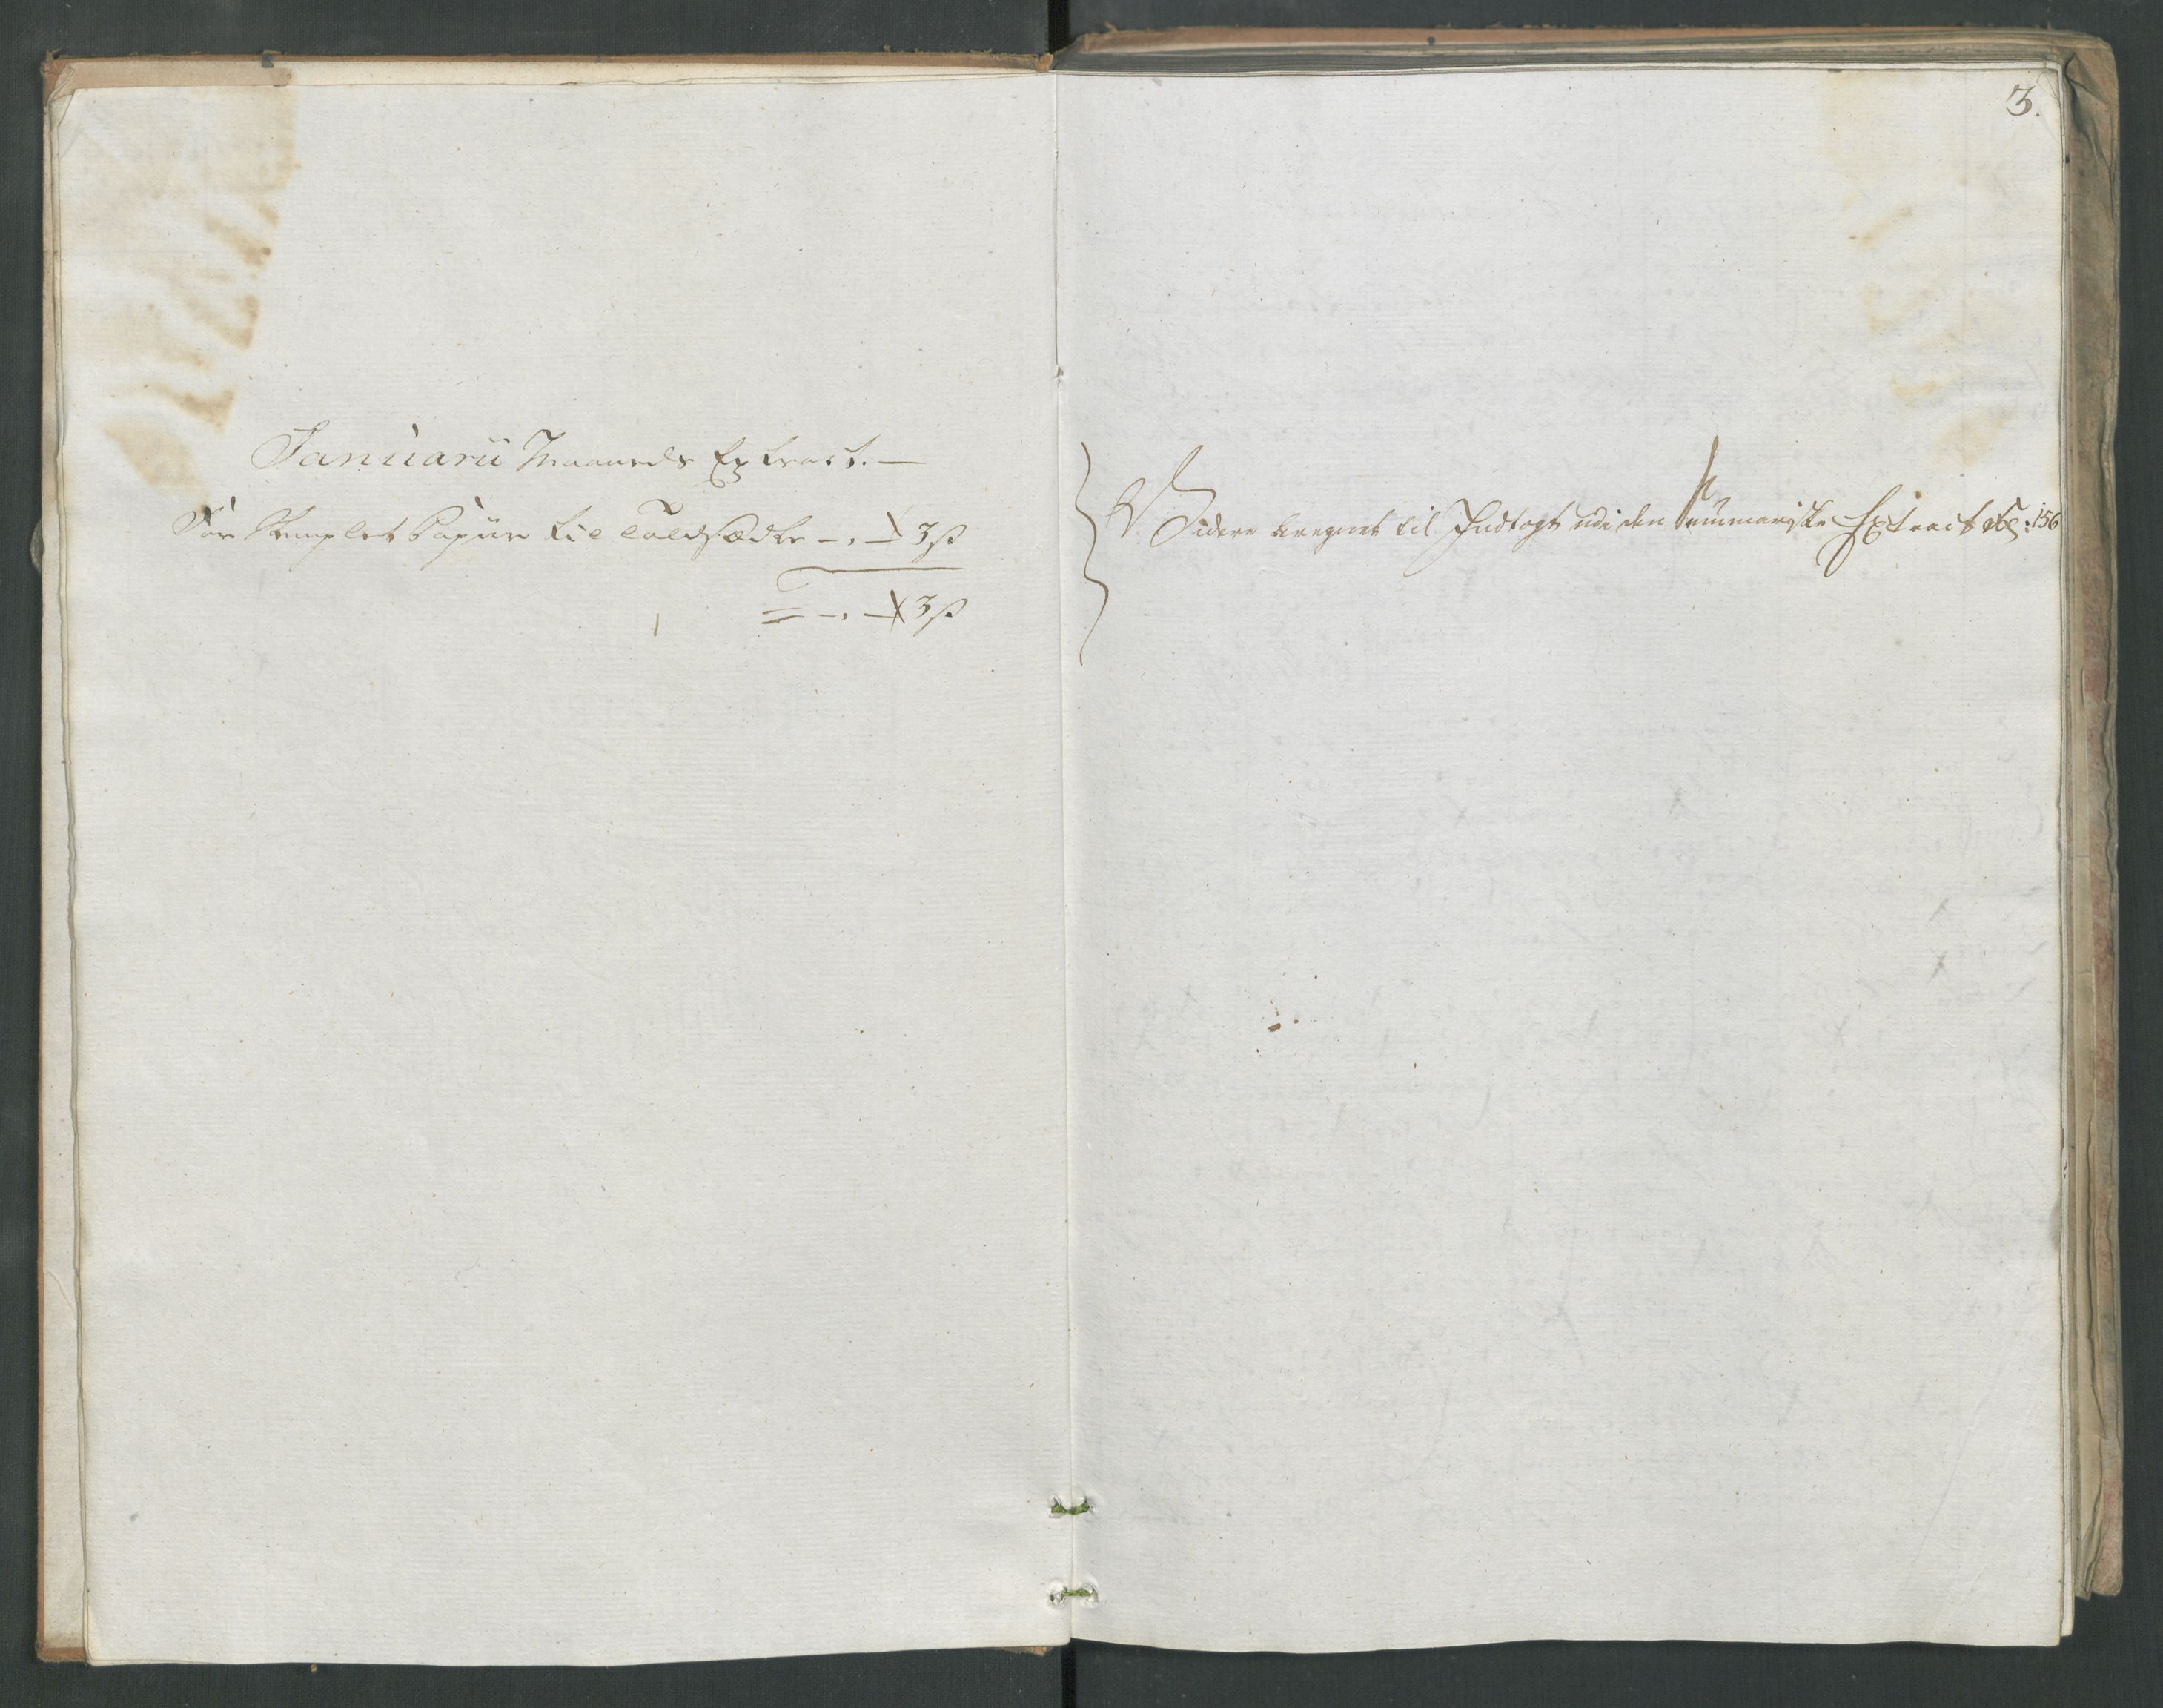 3.
Januarii Maaneds Extract. —
For Stemplet Papiir til Toldsædler — . — 3 ß
= — . — 3 ß
Videre beregnet til Indtægt udi den Summariske Extract fol: 156